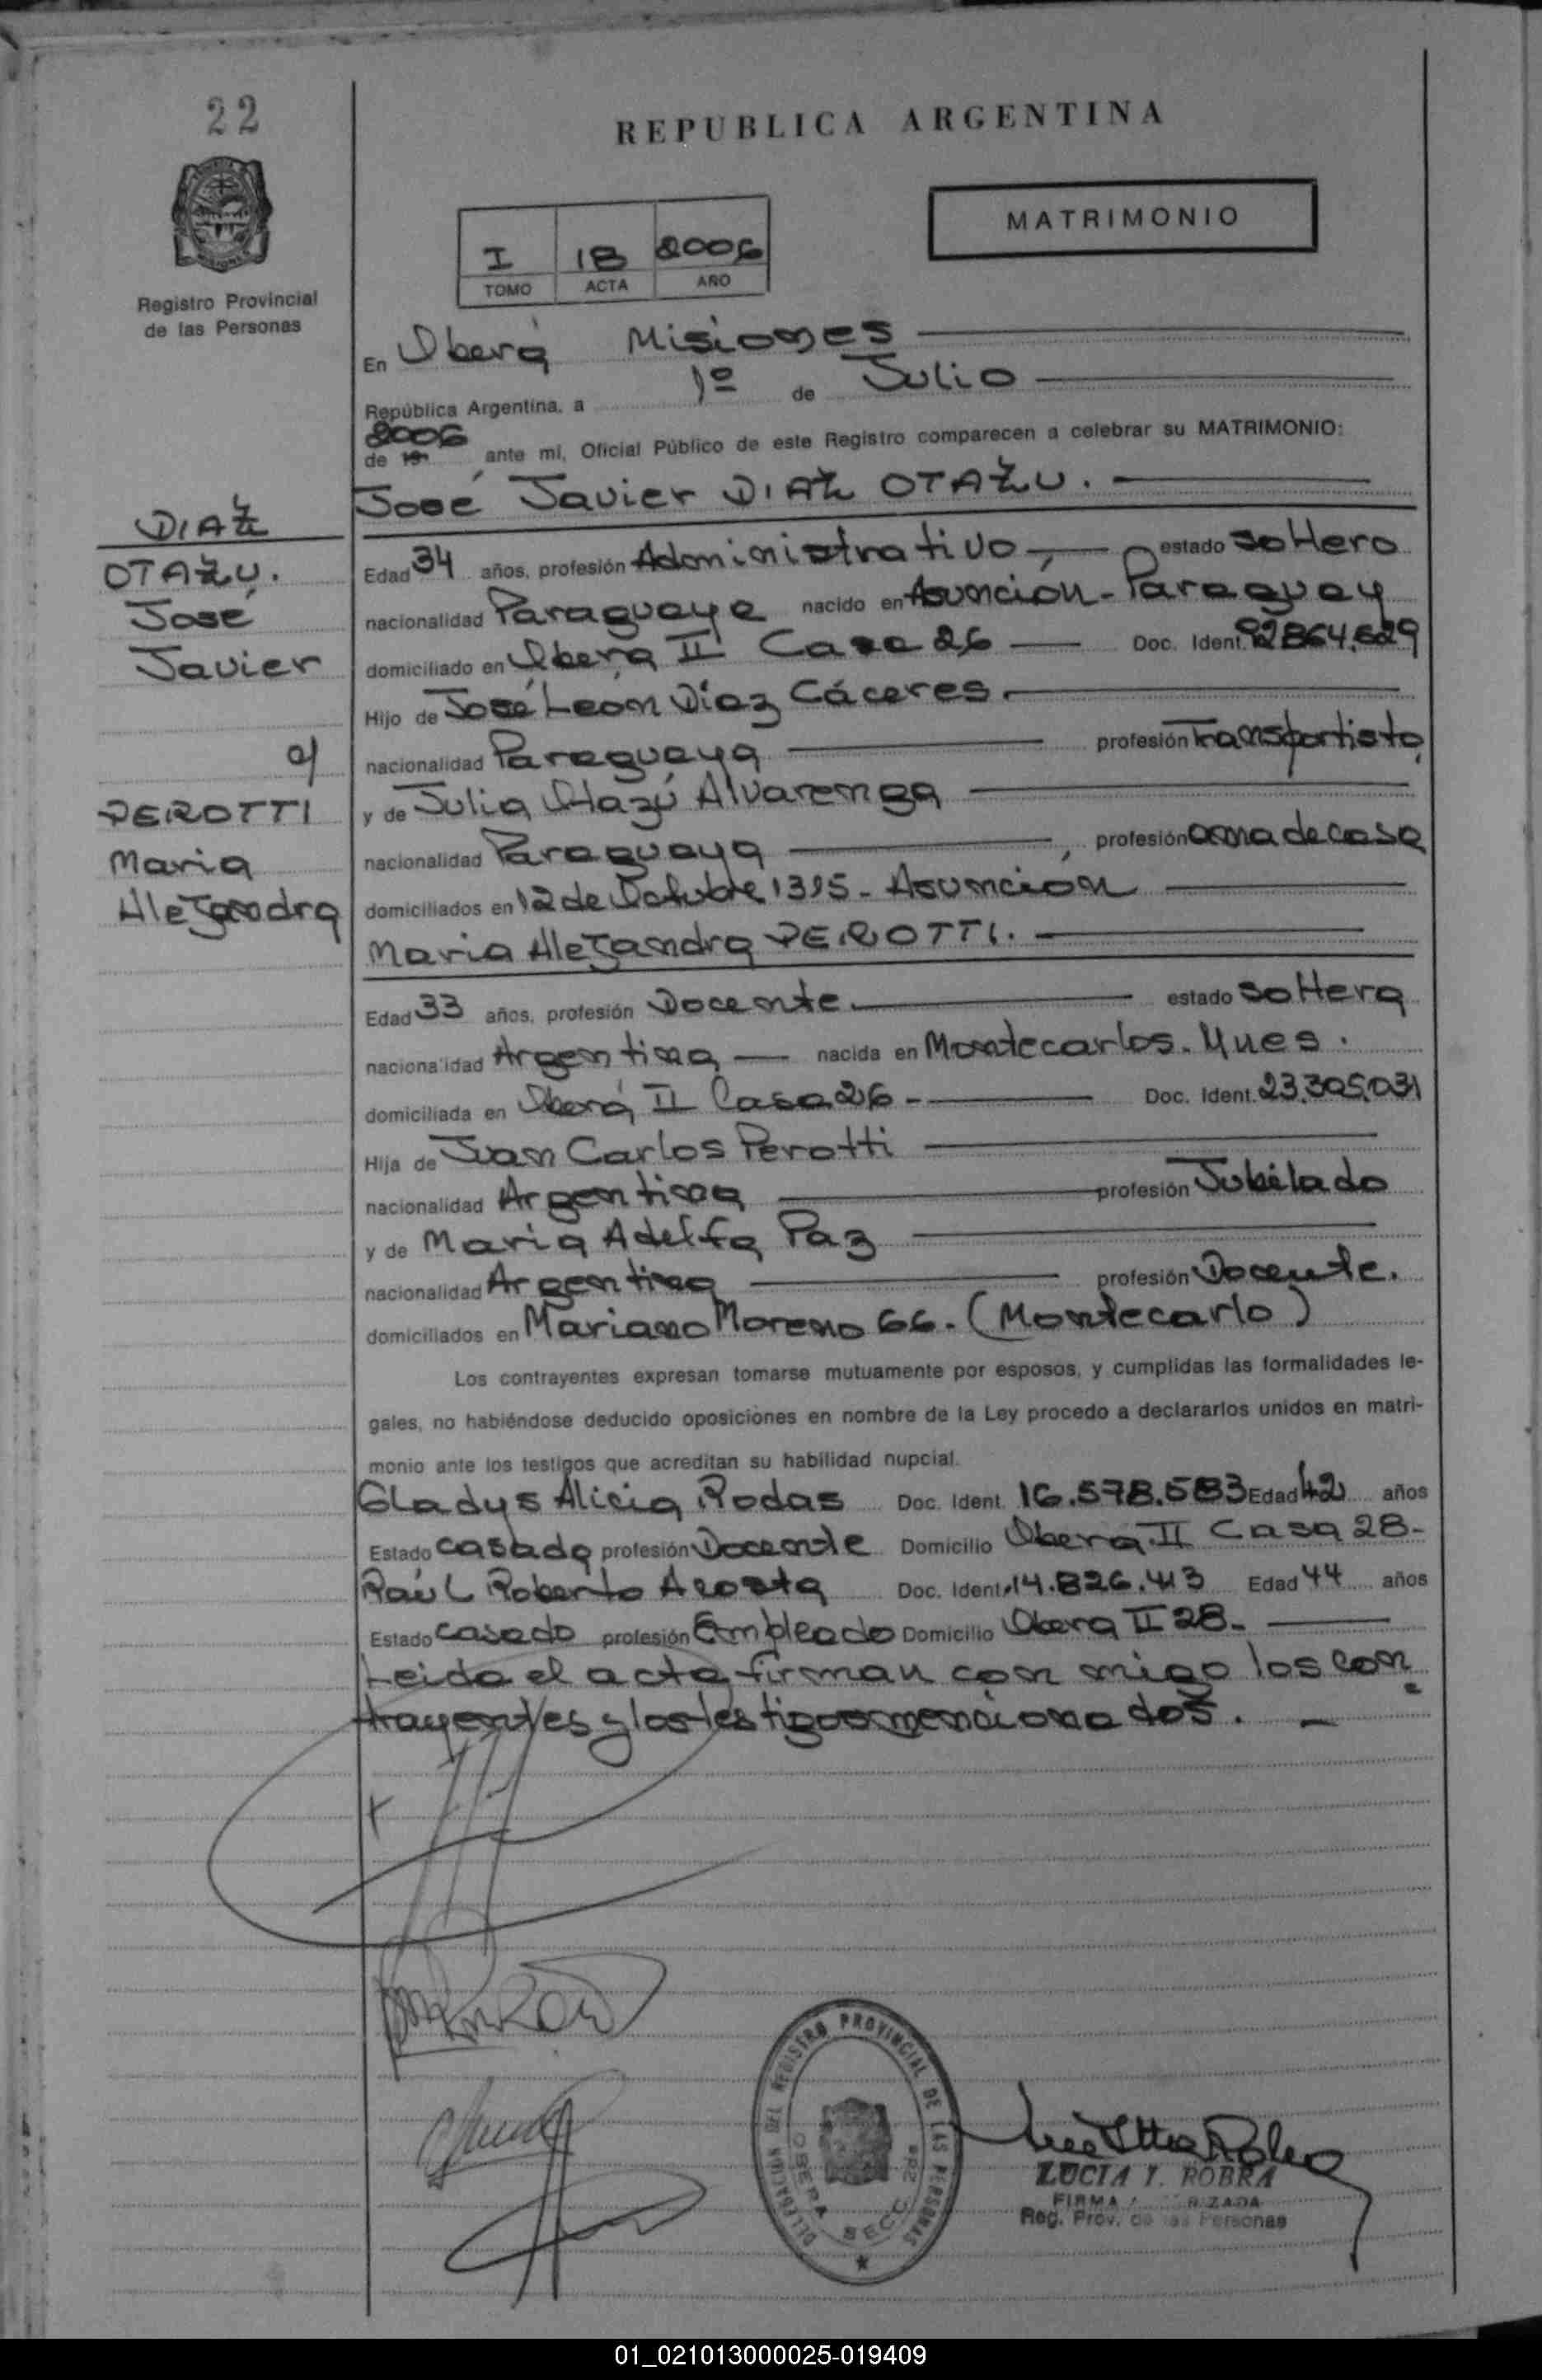 22
REPUBLICA ARGENTINA
MATRIMONIO
I 18 2006
TOMO ACTA AÑO
Registro Provincial
de las Personas
En Oberá Misiones
República Argentina, a 1º de Julio
2006
de 19 ante mi, Oficial Público de este Registro comparecen a celebrar su MATRIMONIO:
José Javier DIAZ OTAZU.
DIAZ
OTAZU.
José
Javier
c/
PEROTTI
Maria
Alejandra
Edad 34 años, profesión Administrativo estado soltero
nacionalidad Paraguaya nacido en Asunción - Paraguay
domiciliado en Oberá II Casa 26 Doc. Ident. 92864.529
Hijo de José León Díaz Cáceres.
nacionalidad Paraguaya profesión Transportista
y de Julia Otazú Alvarenga
nacionalidad Paraguaya, profesión ama de casa
domiciliados en 12 de Octubre 1315 - Asunción
Maria Alejandra PEROTTI.
Edad 33 años, profesión Docente. estado soltera
nacionalidad Argentina nacida en Montecarlos. Mnes.
domiciliada en Oberá II Casa 26 - Doc. Ident. 23.305.031
Hija de Juan Carlos Perotti
nacionalidad Argentina profesión Jubilado
y de Maria Adelfa Paz
nacionalidad Argentina profesión Docente.
domiciliados en Mariano Moreno 66. (Montecarlo)
Los contrayentes expresan tomarse mutuamente por esposos, y cumplidas las formalidades le-
gales, no habiéndose deducido oposiciones en nombre de la Ley procedo a declararlos unidos en matri-
monio ante los testigos que acreditan su habilidad nupcial.
Gladys Alicia Rodas Doc. Ident. 16.578.583 Edad 42 años
Estado casada profesión Docente Domicilio Oberá II Casa 28-
Raúl Roberto Acosta Doc. Ident. 14.826.413 Edad 44 años
Estado casado profesión Empleado Domicilio Obera II 28-
Leida el acta firman con migo los con
trayentes y los testigos mencionados.
DELEGACION DEL REGISTRO PROVINCIAL DE LAS PERSONAS
OBERA SECC. 2da
LUCIA I. ROBRA
FIRMA
Reg. Prov. de las Personas
01_021013000025-019409